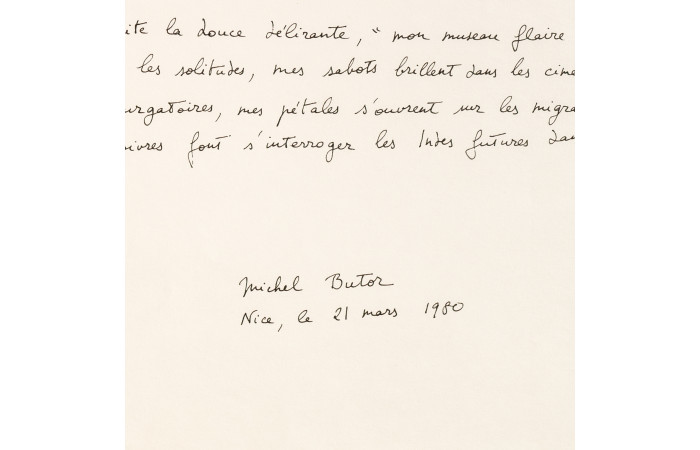 ite la douce délirante, " mon museau flaire
les solitudes, mes sabots brillent dans les cime
urgatoires, mes pétales s'ouvrent sur les migra
ivres font s'interroger les Indes futures dan
Michel Butor
Nice, le 21 mars 1980